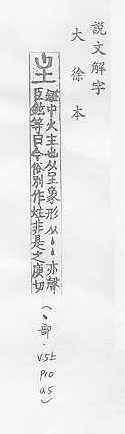 說文解字
大徐本
主
鐙中火主也从𡈼象形从丶丶亦聲
臣鉉等曰今俗別作炷非是之庾切
(丶部.
V.5上
P10
a5)